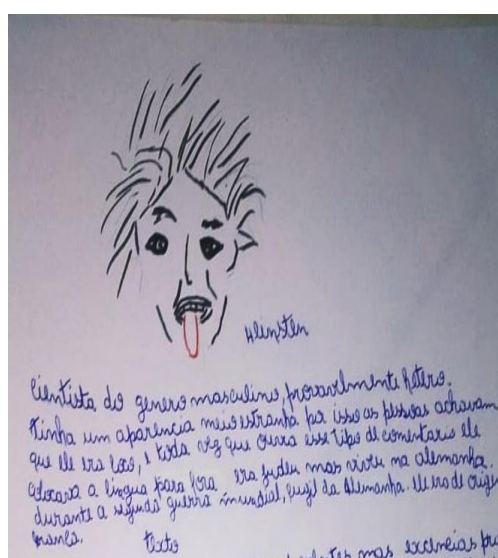 Aleinsten
Cientista do genero masculino, provavelmente hetero.
tinha um aparencia meio estranha por isso as pessoas achavam
que ele era loco, e toda vez que ouvia esse tipo de comentario ele
colocava a lingua para fora era judeu mas viveu na alemanha.
durante a segunda guerra mundial, fugil da Alemanha. ele era de origem
branca.
texto
mas